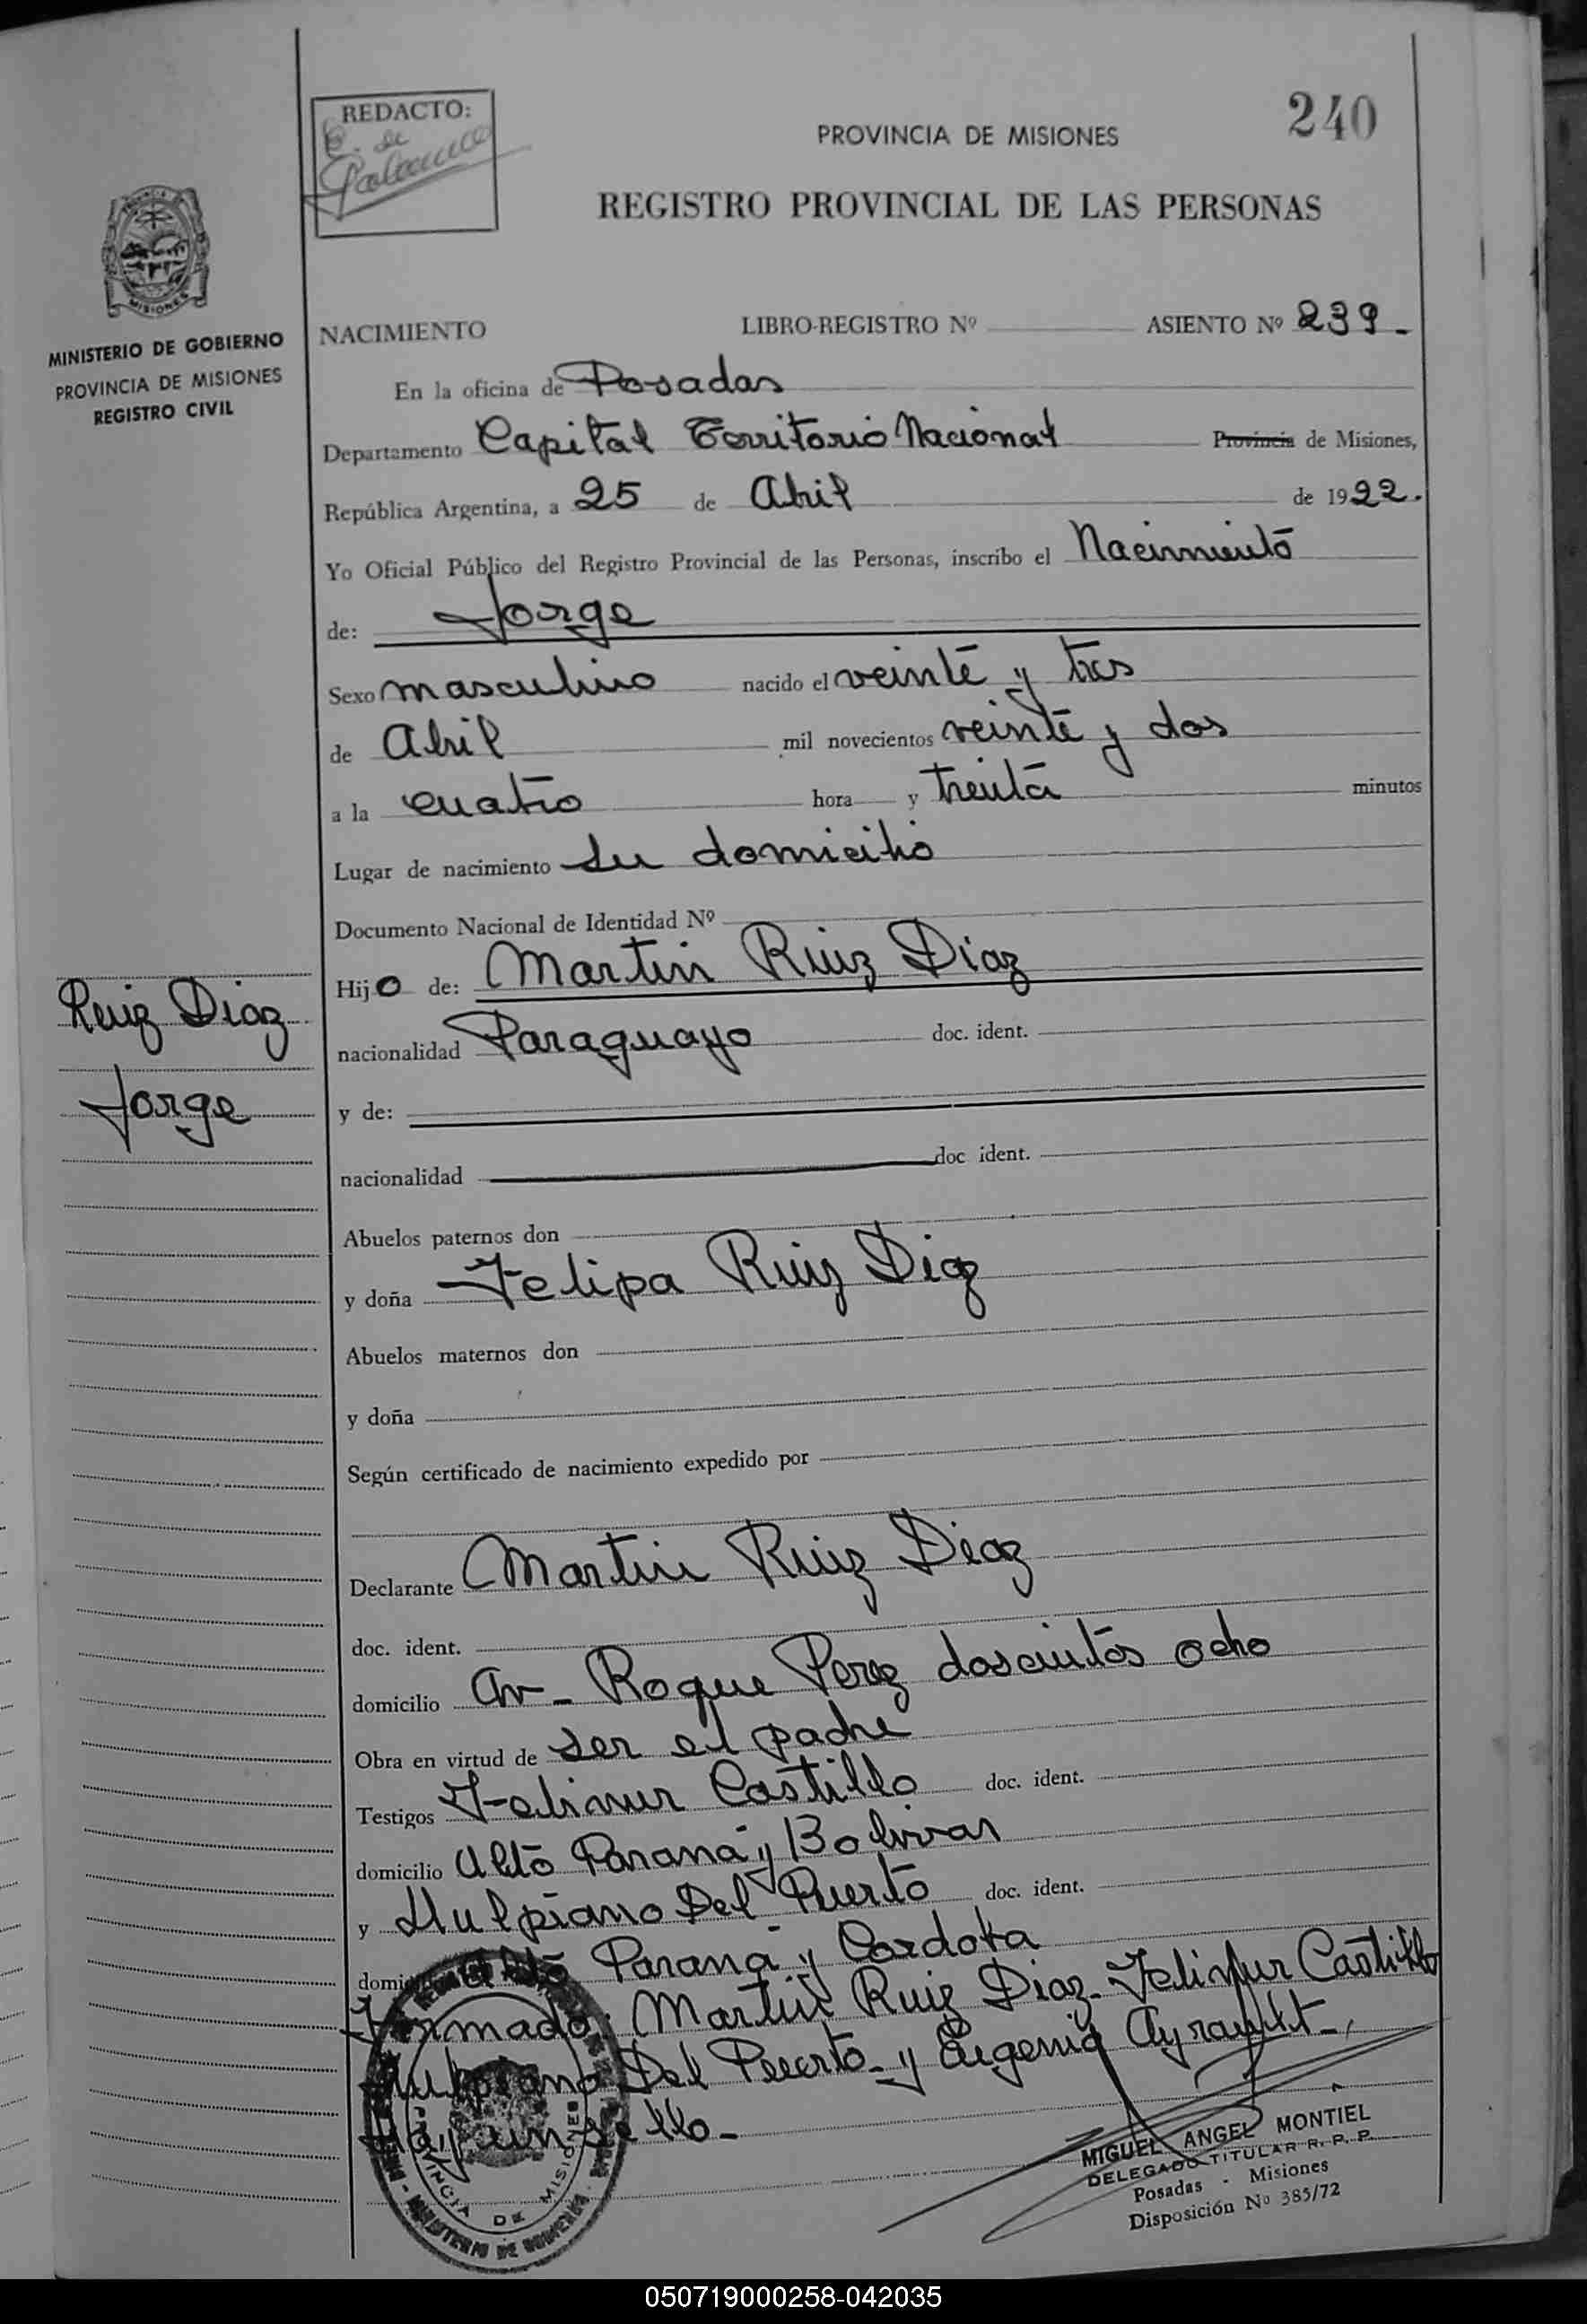 REDACTO:
C. de
240
PROVINCIA DE MISIONES
REGISTRO PROVINCIAL DE LAS PERSONAS
MISIONES
MINISTERIO DE GOBIERNO
PROVINCIA DE MISIONES
REGISTRO CIVIL
NACIMIENTO LIBRO-REGISTRO Nº ASIENTO Nº 239.-
En la oficina de Posadas
Departamento Capital Territorio Nacional Provincia de Misiones,
República Argentina, a 25 de Abril de 1922.
Yo Oficial Público del Registro Provincial de las Personas, inscribo el Nacimiento
de: Jorge
Sexo masculino nacido el veinte y tres
de Abril mil novecientos veinte y dos
a la cuatro hora y treinta minutos
Lugar de nacimiento Su domicilio
Documento Nacional de Identidad Nº
Hijo de: Martin Ruiz Diaz
Ruiz Diaz
nacionalidad Paraguayo doc. ident.
Jorge
y de:
nacionalidad doc ident.
Abuelos paternos don
y doña Felipa Ruiz Diaz
Abuelos maternos don
y doña
Según certificado de nacimiento expedido por
Declarante Martin Ruiz Diaz
doc. ident.
domicilio Av- Roque Perez doscientos ocho
Obra en virtud de ser el padre
Testigos Felimur Castillo doc. ident.
domicilio Alto Paraná y Bolivar
y Hulpiano Del Puerto doc. ident.
domicilio Alto Paraná y Cordoba
Firmado: Martin Ruiz Diaz- Felimur Castillo
Hulpiano Del Puerto- y Eugenio Ayrault-,
Hay un sello.-
PROVINCIA DE MISIONES
MINISTERIO DE GOBIERNO
MIGUEL ANGEL MONTIEL
DELEGADO TITULAR R. P. P.
Posadas - Misiones
Disposición Nº 385/72
050719000258-042035